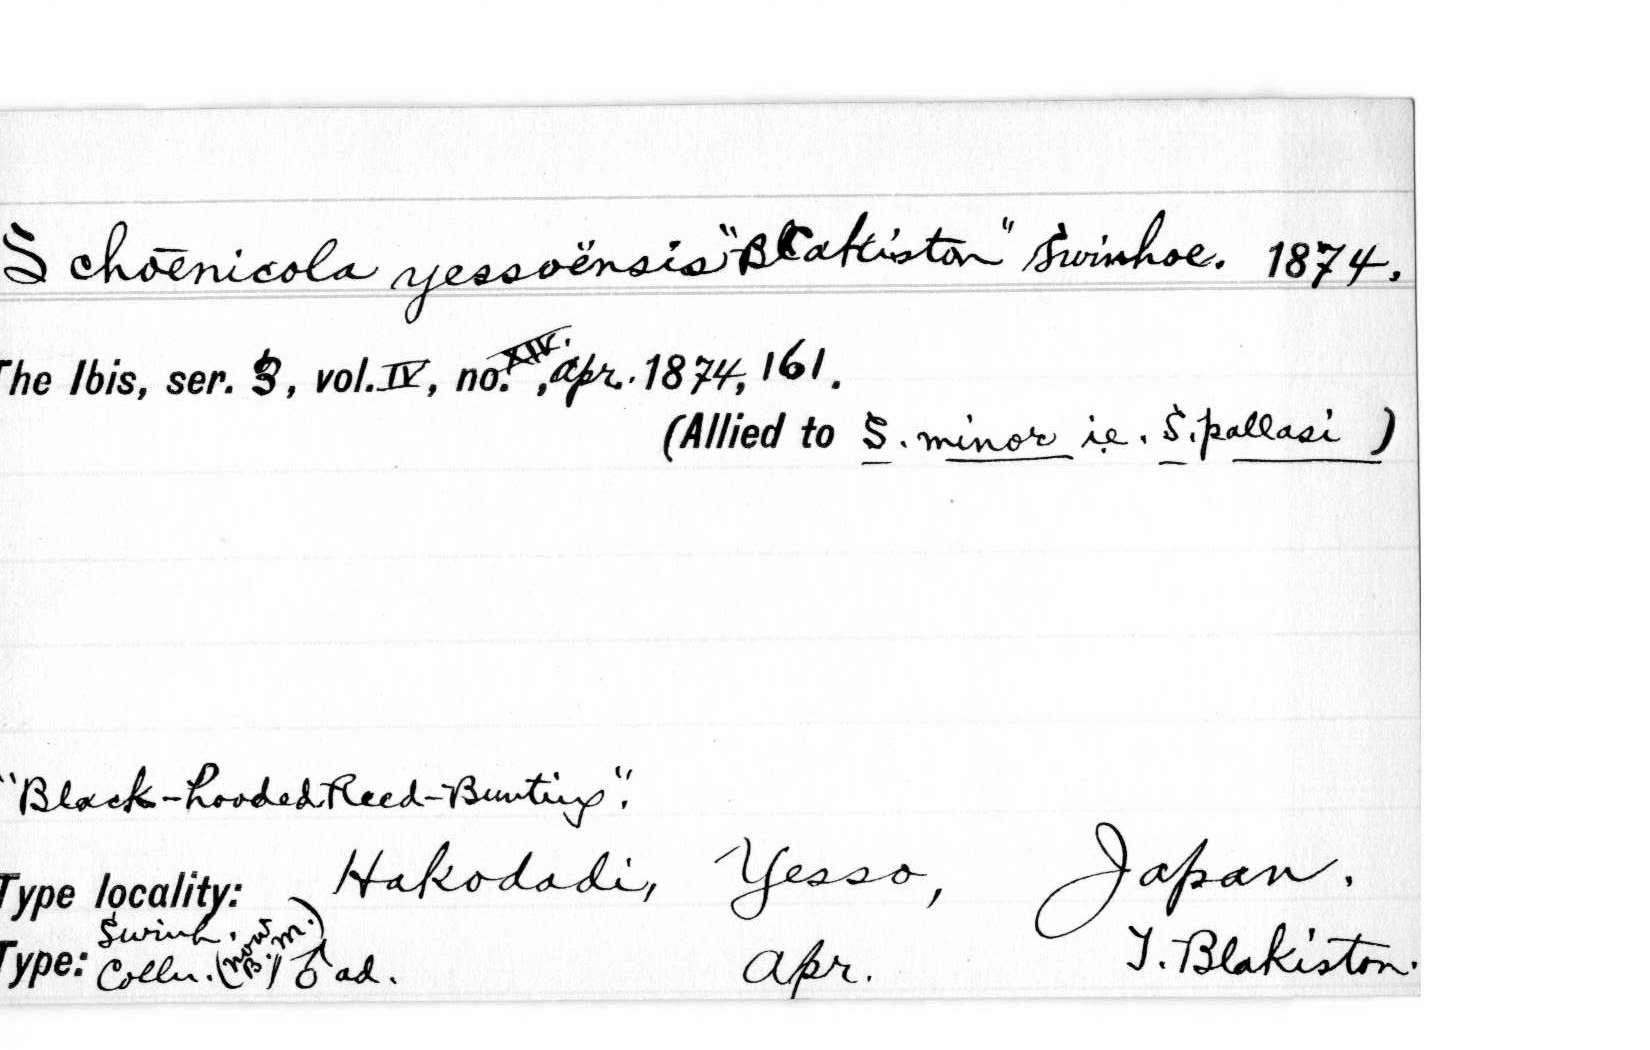 Schōenicola yessoënsis "Blakiston" Swinhoe. 1874.
The Ibis, ser. 3, vol. IV, no. XIV., Apr. 1874, 161.
(Allied to S. minor i.e. S. pallasi)
"Black-hooded Reed-Bunting".
Type locality: Hakodadi, Yesso, Japan.
Type: Swinh. Colln. (now B.M.) 1 ♂ ad. Apr. T. Blakiston.